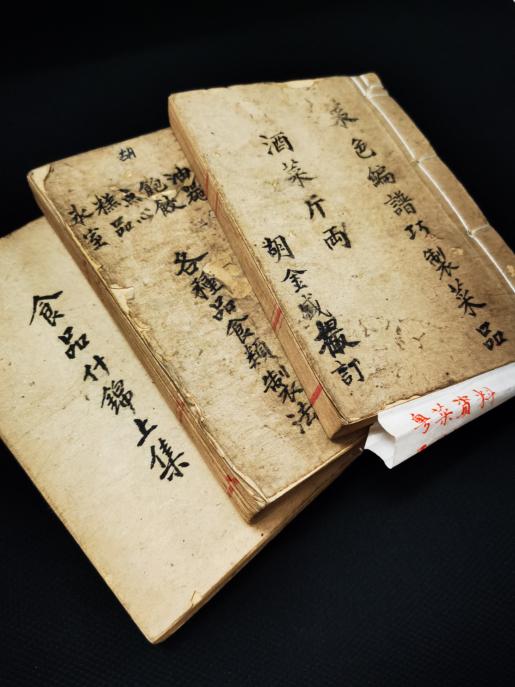 菜色編譜巧製菜品
酒菜斤兩
胡金盛 訂
粤菜資料
胡
油器
飽
点心
糕品
氷室
各種品食類製法
食品什錦上集